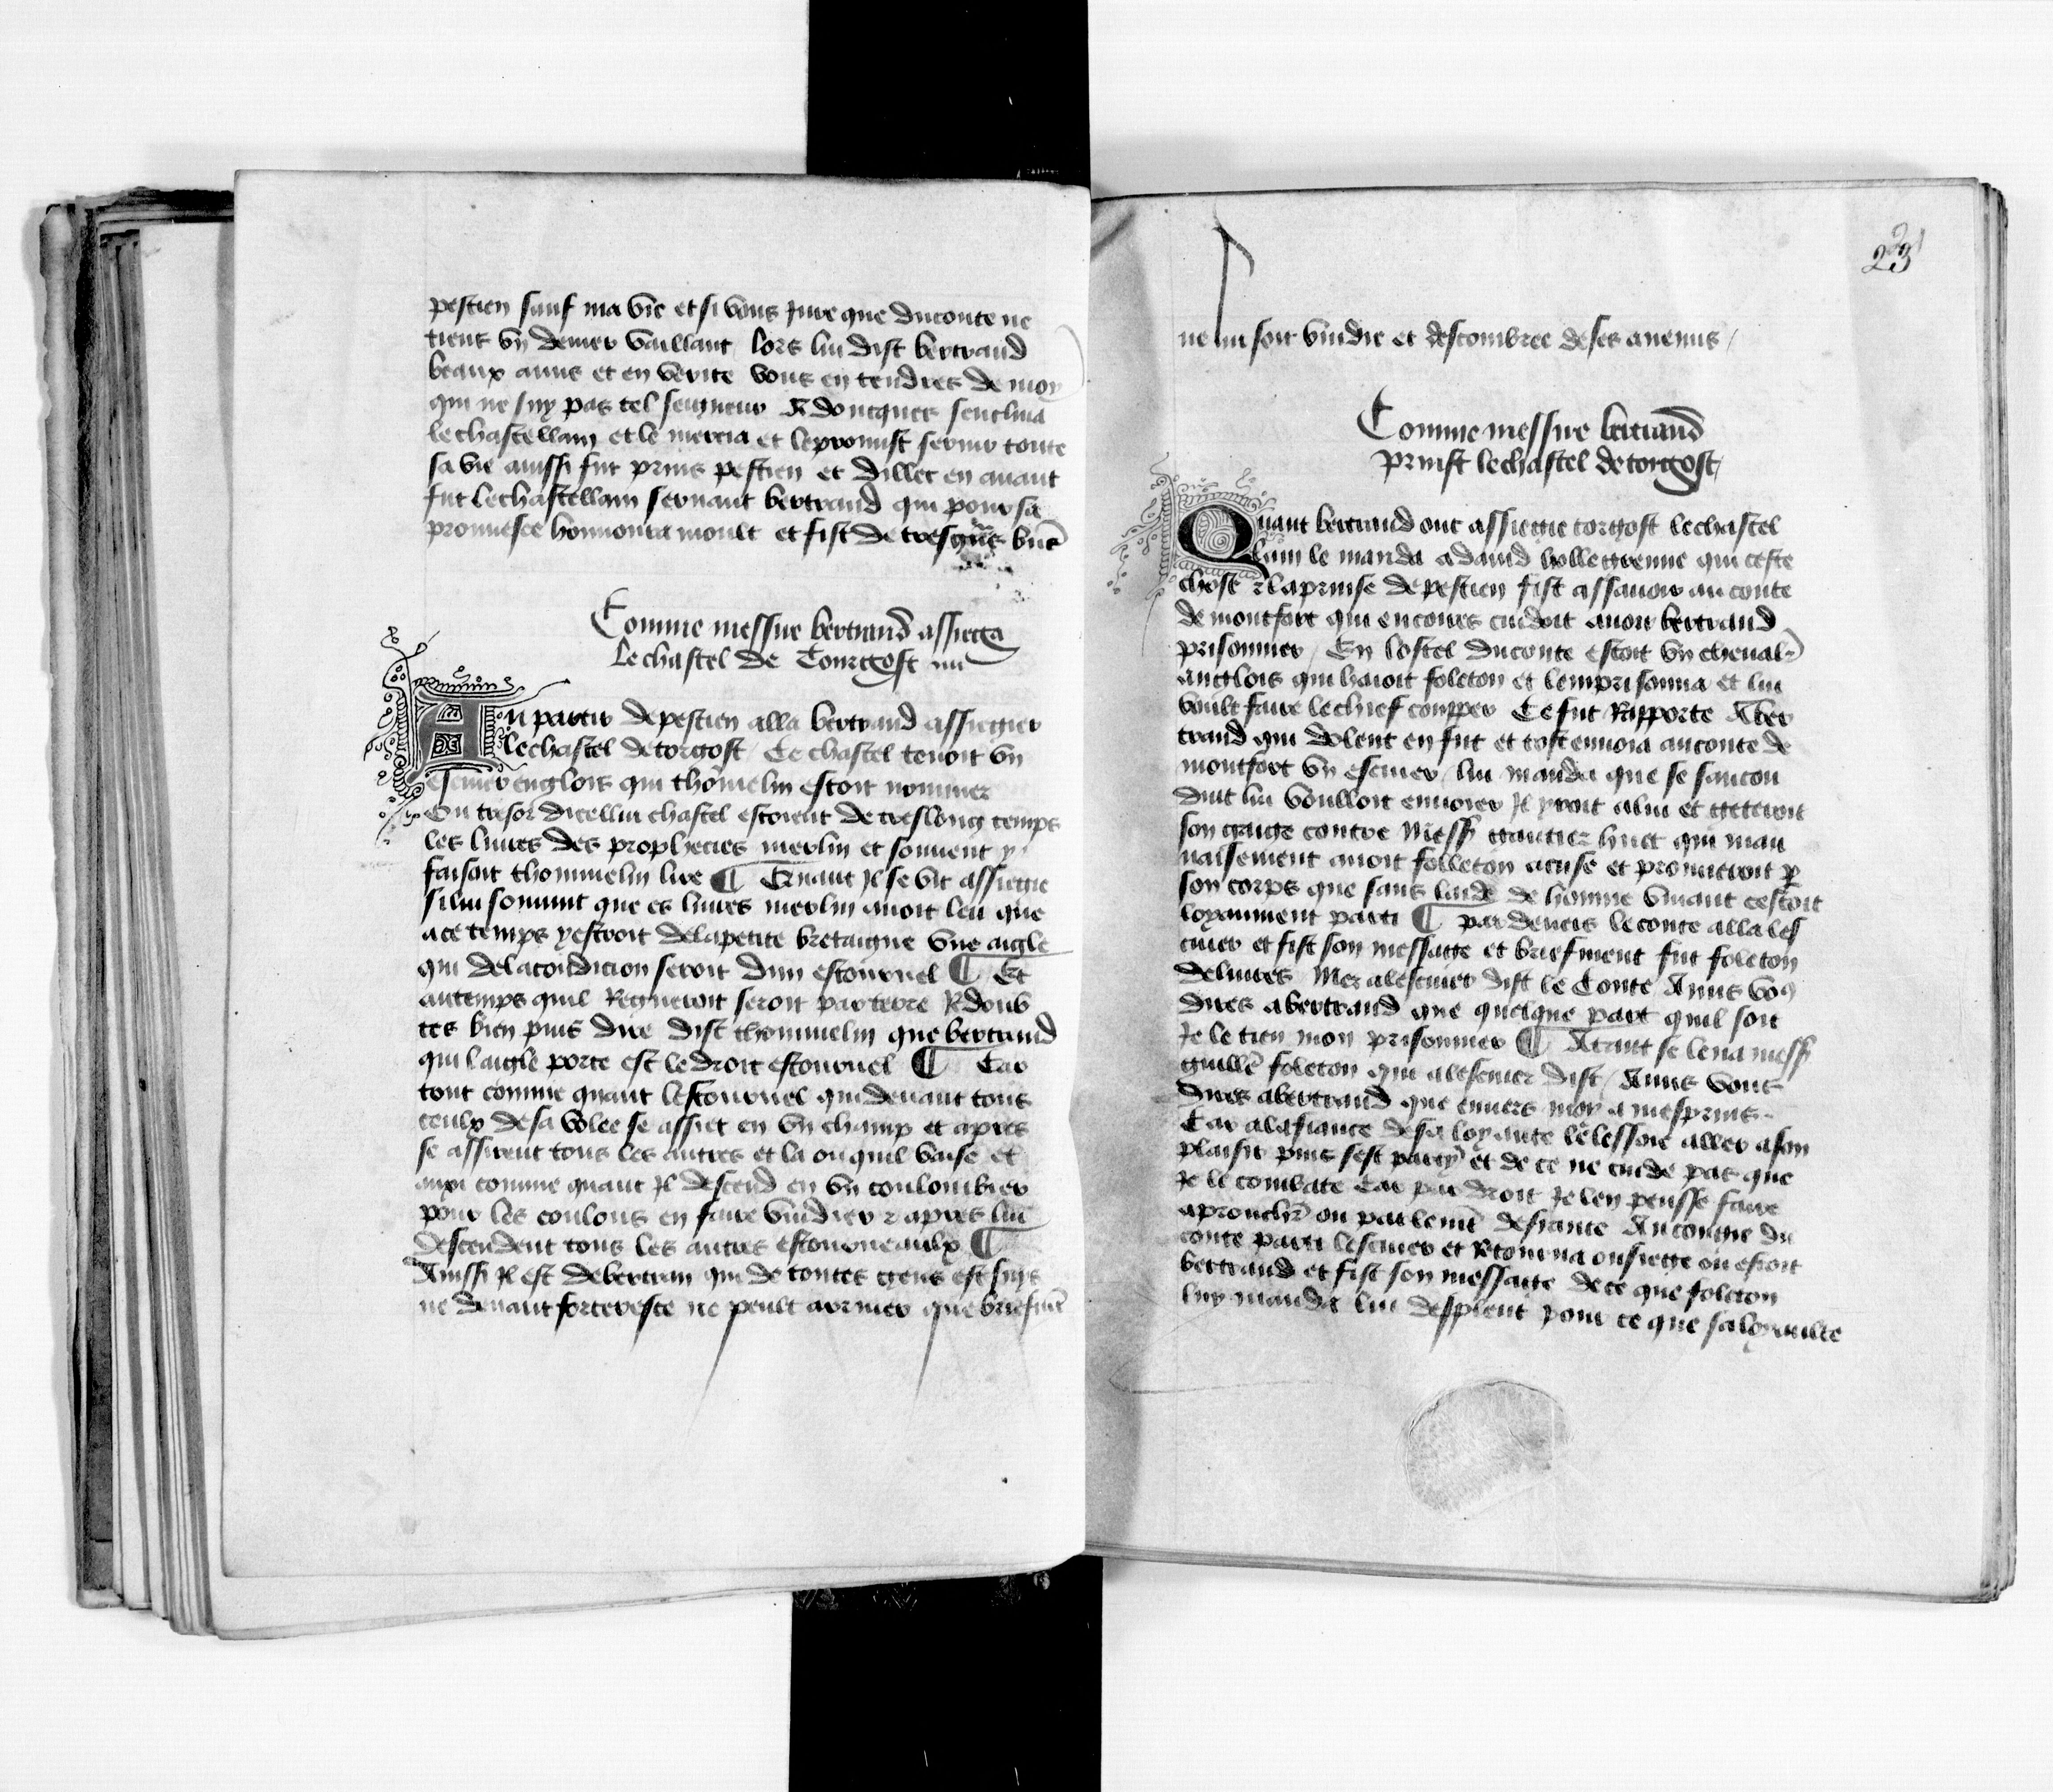 pestien sauf ma vie et si vous Jure que du conte ne
tient vng denier vaillant lors lui dist bertrand
beaux amis et en verite vous en tendres de moy
qui ne suy pas tel seigneur Adoncques senclina
le chastellain et le mercia et le promist seruir toute
sa vie ainssi fut prins pestien et dillec en auant
fut le chastellain seruant bertrand qui pour sa
promesce honnoura moult et fist de tresgñs bñs
Comme messire bertrand assiega
Le chastel de Tourgost
Au partir de pestien alla bertrand assiegier
le chastel de torgost Ce chastel tenoit vn
escuier englois qui thomelin estoit nommez
Ou tresor dicellui chastel estoient de treslong temps
les liures des prophecies merlin et souuent y
faisoit thommelin lire ¶ Quant Jl se vit assiegie
si lui souuint que es liures merlin auoit leu que
a ce temps ystroit de la petite bretaigne vne aigle
qui de la condicion seroit dun estournel ¶ Et
au temps quil Regneroit seroit par terre Redoub
tes bien puis dire dist thommelin que bertrand
qui laigle porte est le droit estournel ¶ Car
tout comme quant lestournel qui deuant tous
ceulx de sa volee se assiet en vn champ et apres
se assieent tous les autres et la ou quil voise et
auxi comme quant Jl descend en vn coulombier
pour les coulons en faire vuidier et apres lui
descendent tous les autres estourneaulx ¶
Ainssi Jl est de bertran qui de toutes gens est suys
ne deuant forteresce ne peult arriuer que briefmẽt
23
ne lui soit vuidie et descombree de ses anemis
Comme messire bertrand
prinst le chastel de torgost
Quant bertrand out assiegie torgost le chastel
lain le manda a dauid hollegrenne qui ceste
chose et la prinse de pestien fist assauoir au conte
de montfort qui encores cuidoit auoir bertrand
prisonnier En lostel du conte estoit vn cheualr
anglois qui haioit foleton et lemprisonna et lui
voult faire le chief coupper Ce fut Rapporte A ber
trand qui dolent en fut et tost enuoia au conte de
montfort vn escuier lui manda que se saucon
duit lui voulloit enuoier Jl yroit a lui et getteroit
son gaige contre Messř gautier huet qui mau
uaisement auoit folleton acuse et prouueroit p
son corps que sans laide de homme viuant cestoit
loyaument parti ¶ par deuers le conte alla les
cuier et fist son messaige et briefment fut foleton
deliures Mes a lescuier dist le Conte Amis vo9
dires a bertrand que quelque part quil soit
Je le tien mon prisonnier ¶ Atant se leua messř
guillẽ foleton qui a lescuier dist Amis vous
dires a bertrand que enuers moy a mesprins
Car a la fiance de sa loyaute le lessoie aller a son
plaisir puis sest party et de ce ne cuide pas que
Je le combate Car par droit Je len peusse faire
aprouchř ou parlemẽt de france Au congie du
conte parti lescuier et Retourna ou siege ou estoit
bertrand et fist son messaige de ce que foleton
luy manda lui despleut pour ce que sa loyaulte